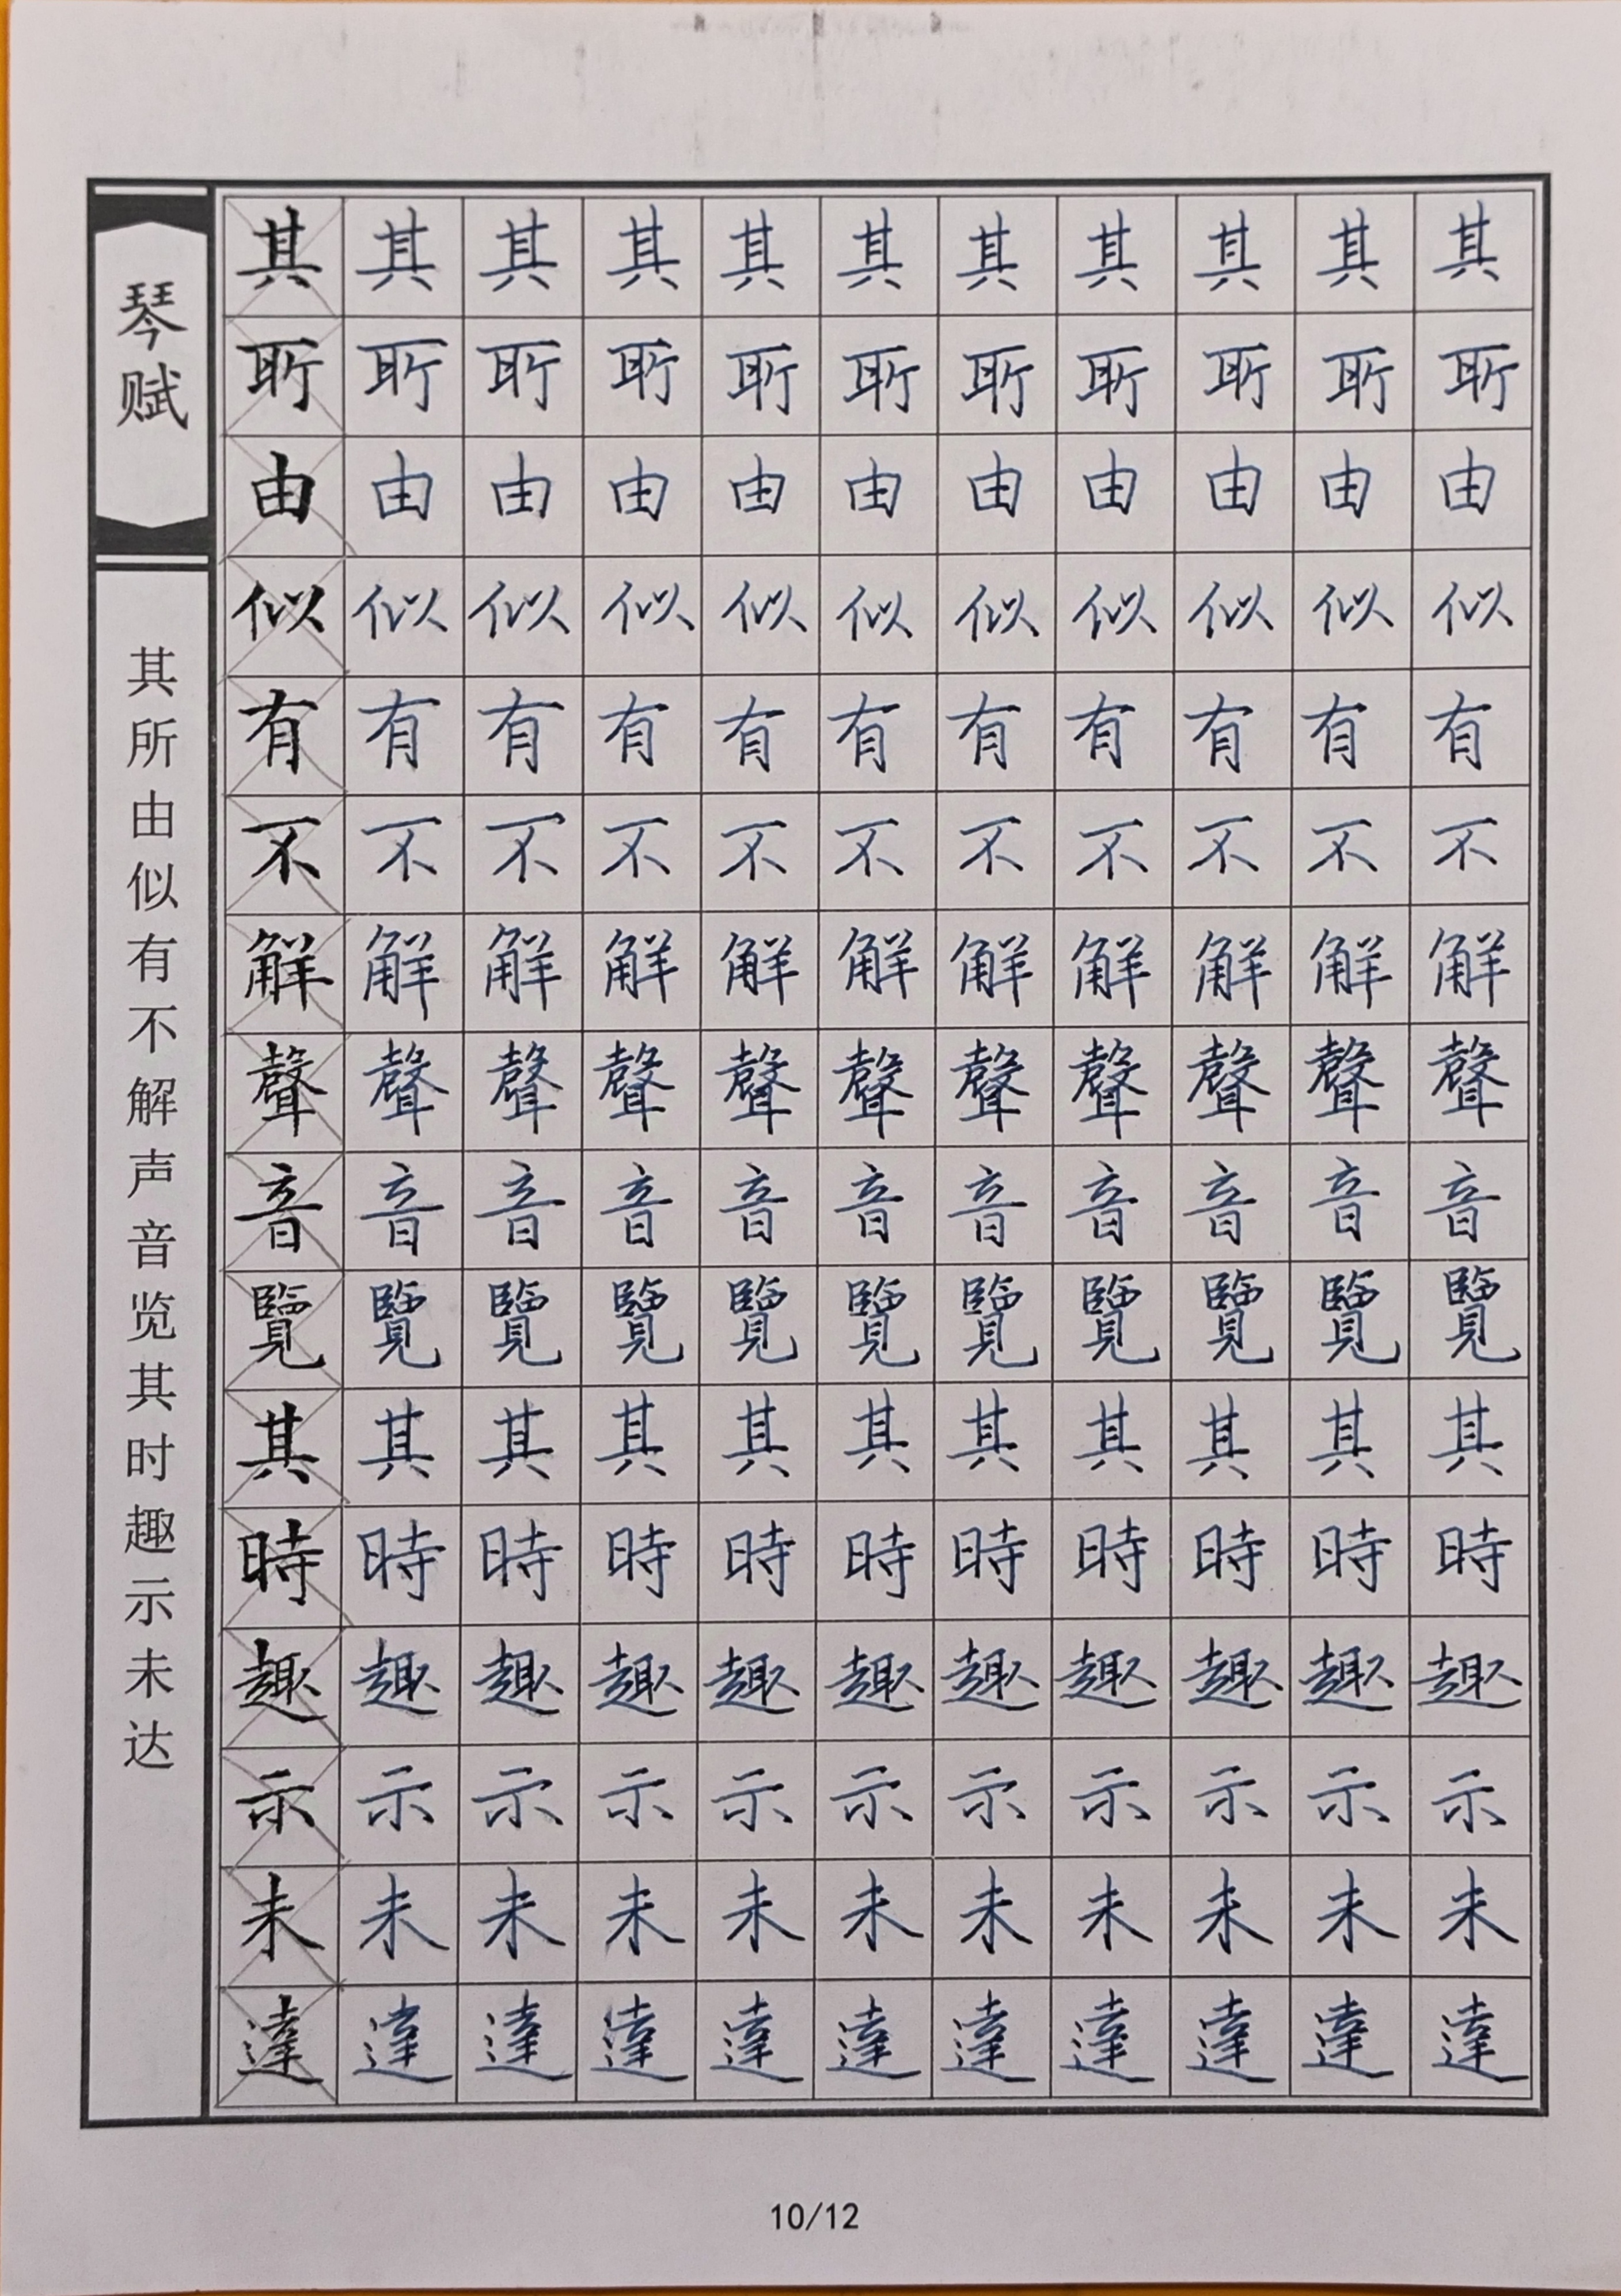 琴赋
其所由似有不解声音览其时趣示未达
其其其其其其其其其其其
所所所所所所所所所所所
由由由由由由由由由由由
似似似似似似似似似似似
有有有有有有有有有有有
不不不不不不不不不不不
解解解解解解解解解解解
聲聲聲聲聲聲聲聲聲聲聲
音音音音音音音音音音音
覽覽覽覽覽覽覽覽覽覽覽
其其其其其其其其其其其
時時時時時時時時時時時
趣趣趣趣趣趣趣趣趣趣趣
示示示示示示示示示示示
未未未未未未未未未未未
達達達達達達達達達達達
10/12